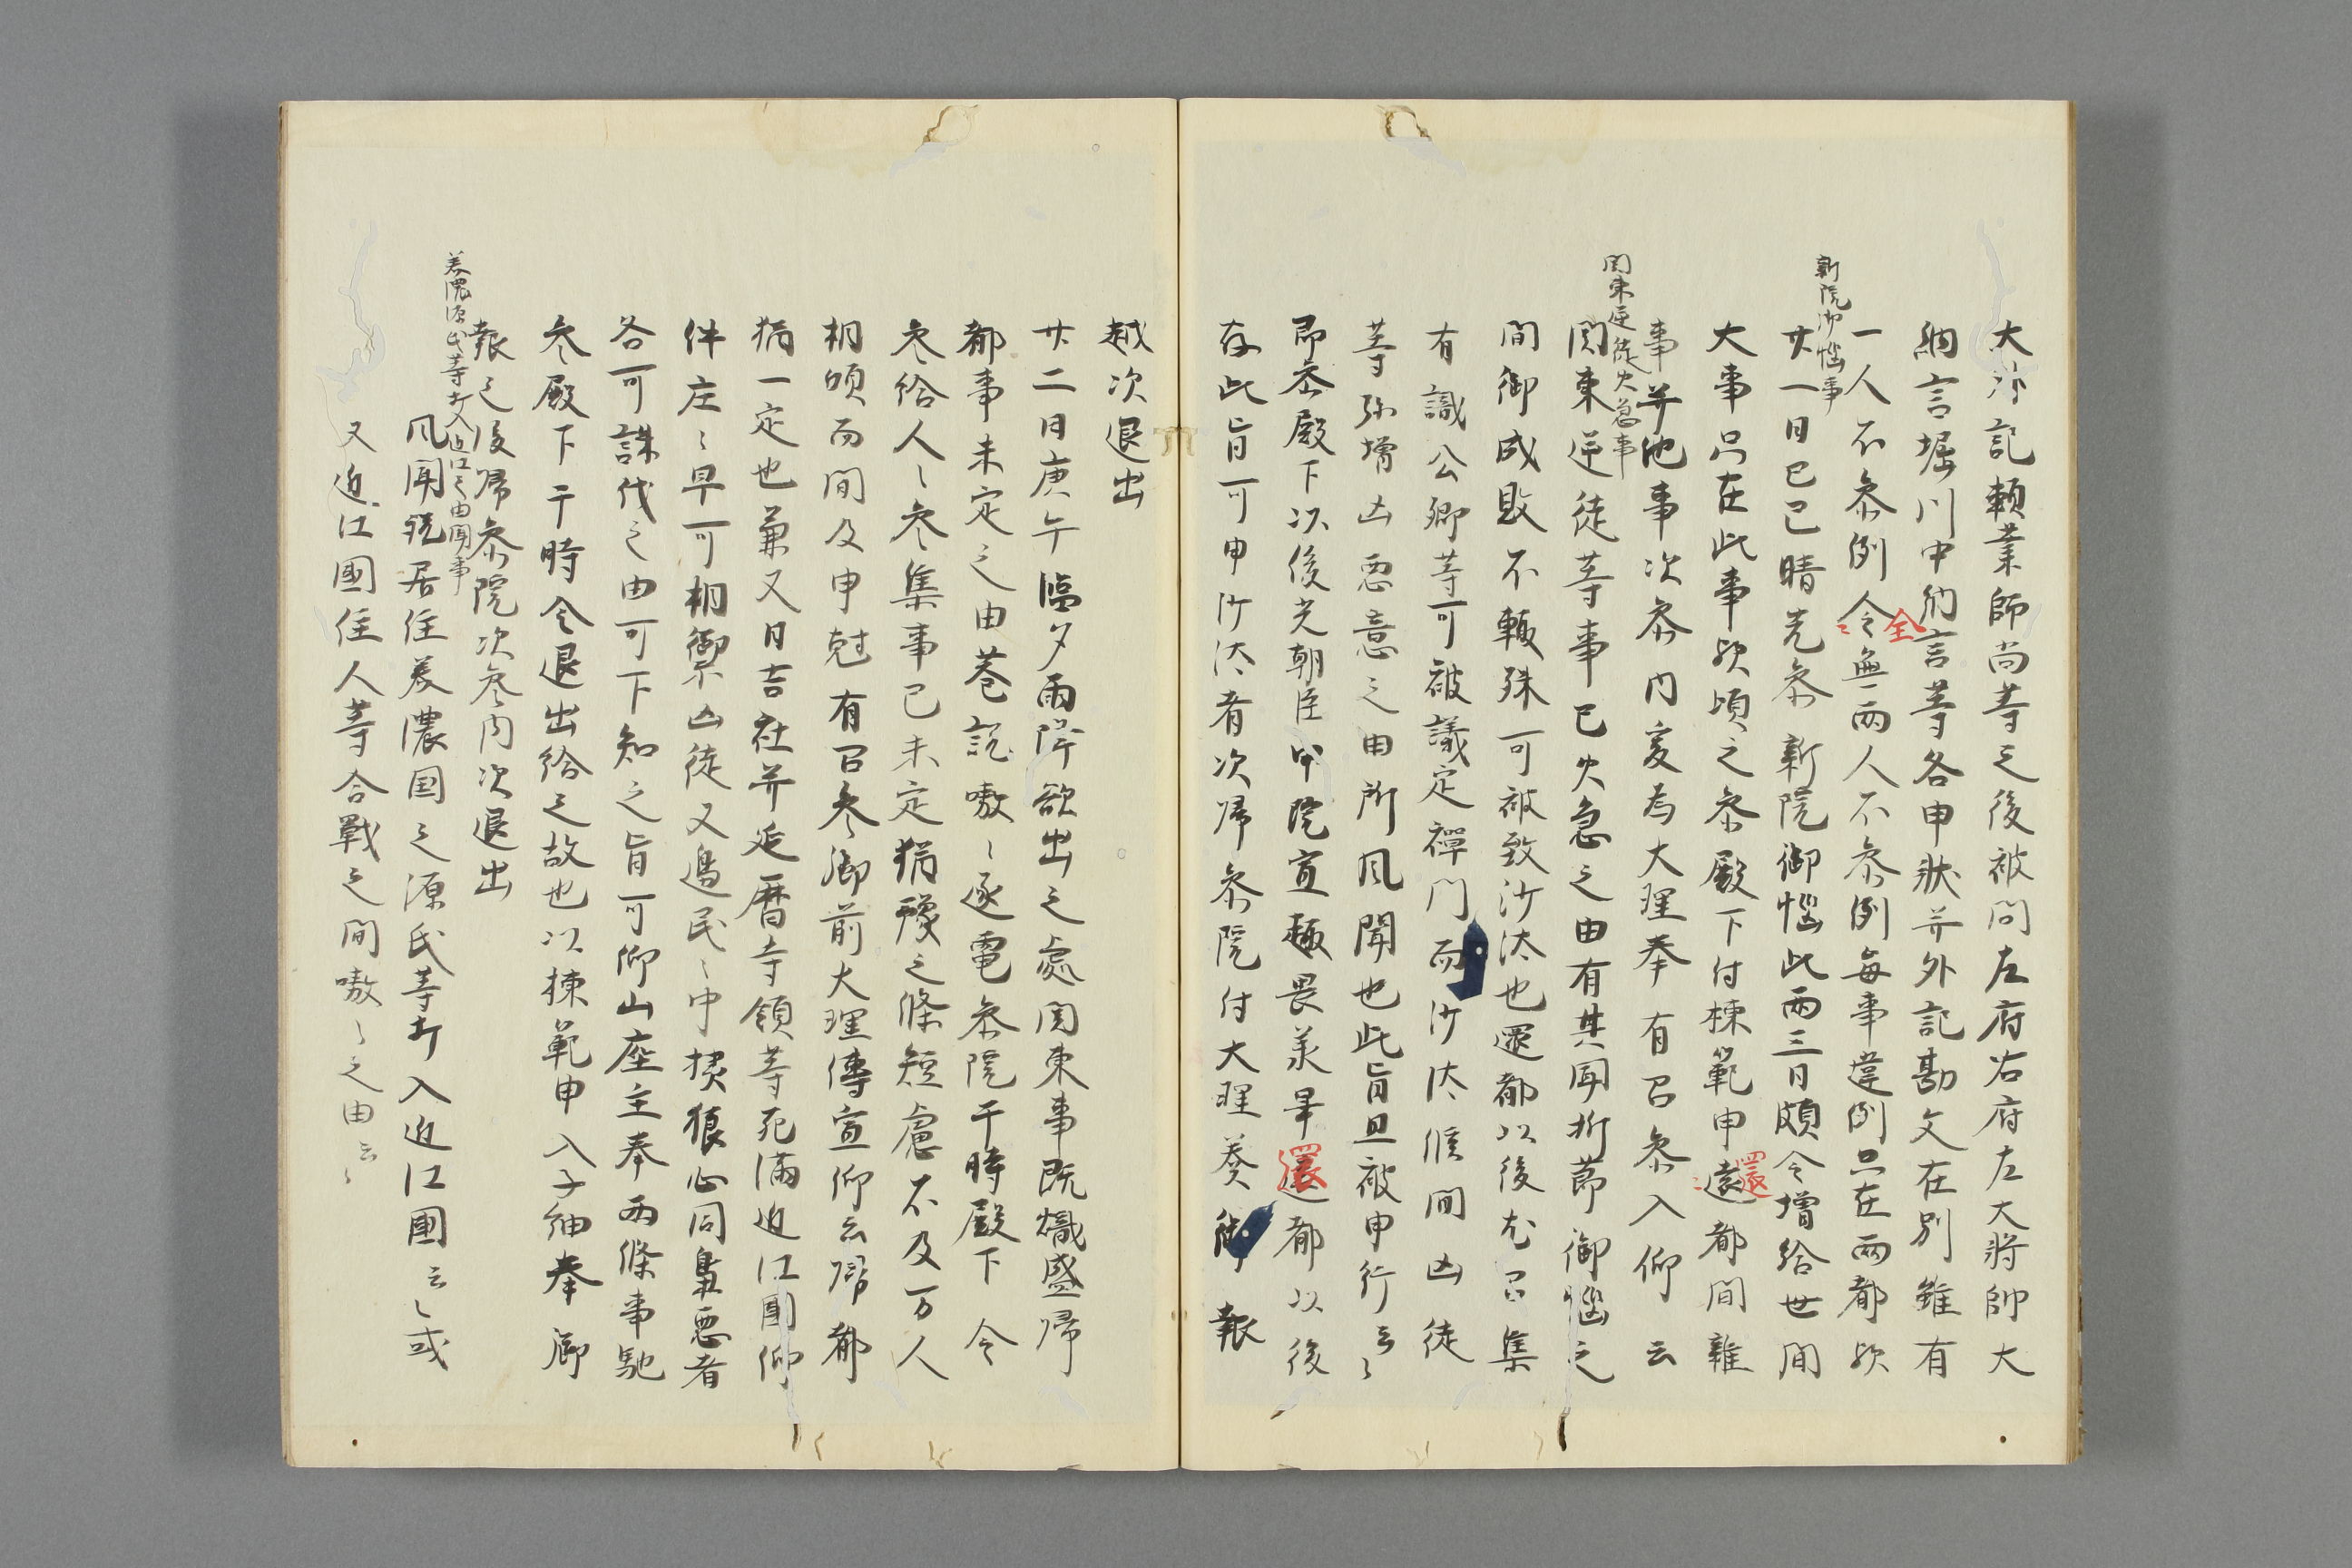 大外記頼業師尚等之後被問左府右府左大将帥大
納言堀川中納言等各申状并外記勘文在別雖有
一人不参例令無両人不参例毎事違例只在両都欤
全
新院御悩事
廿一日己巳晴先参 新院御悩此両三日頗令増給世間
大事只在此事欤頃之参殿下付棟範申遠都間雑
還
事并他事次参内変為大理奉 有召参入仰云
関東逆徒火急事
関東逆徒等事已火急之由有其聞折節御悩之
間御成敗不輙殊可被致沙汰也還都以後尤召集
有識公卿等可被議定禅門而沙汰候間凶徒
等弥増凶悪意之由所風聞也此旨且被申行云々
即参殿下以後光朝臣申院宣趣畏承畢還都以後
還
存此旨可申沙汰者次帰参院付大理奏御報
越次退出
廿二日庚午臨夕雨降欲出之處関東事既熾盛帰
都事未定之由巷説嗷々遂電参院于時殿下令
参給人々参集事已未定猶豫之條短慮不及万人
相頃而間及申尅有召参御前大理傳宣仰云帰都
猶一定也兼又日吉社并延暦寺領等充満近江国仰
件庄々早可相禦凶徒又邉民之中挟狼心同梟悪者
各可誅伐之由可下知之旨可仰山座主奉両條事馳
参殿下于時令退出給之故也以棟範申入子細奉御
報之後帰参院次参内次退出
美濃源氏等打入近江之由聞事
風聞説居住美濃国之源氏等打入近江國云々或
又近江國住人等合戰之間嗷々之由云々